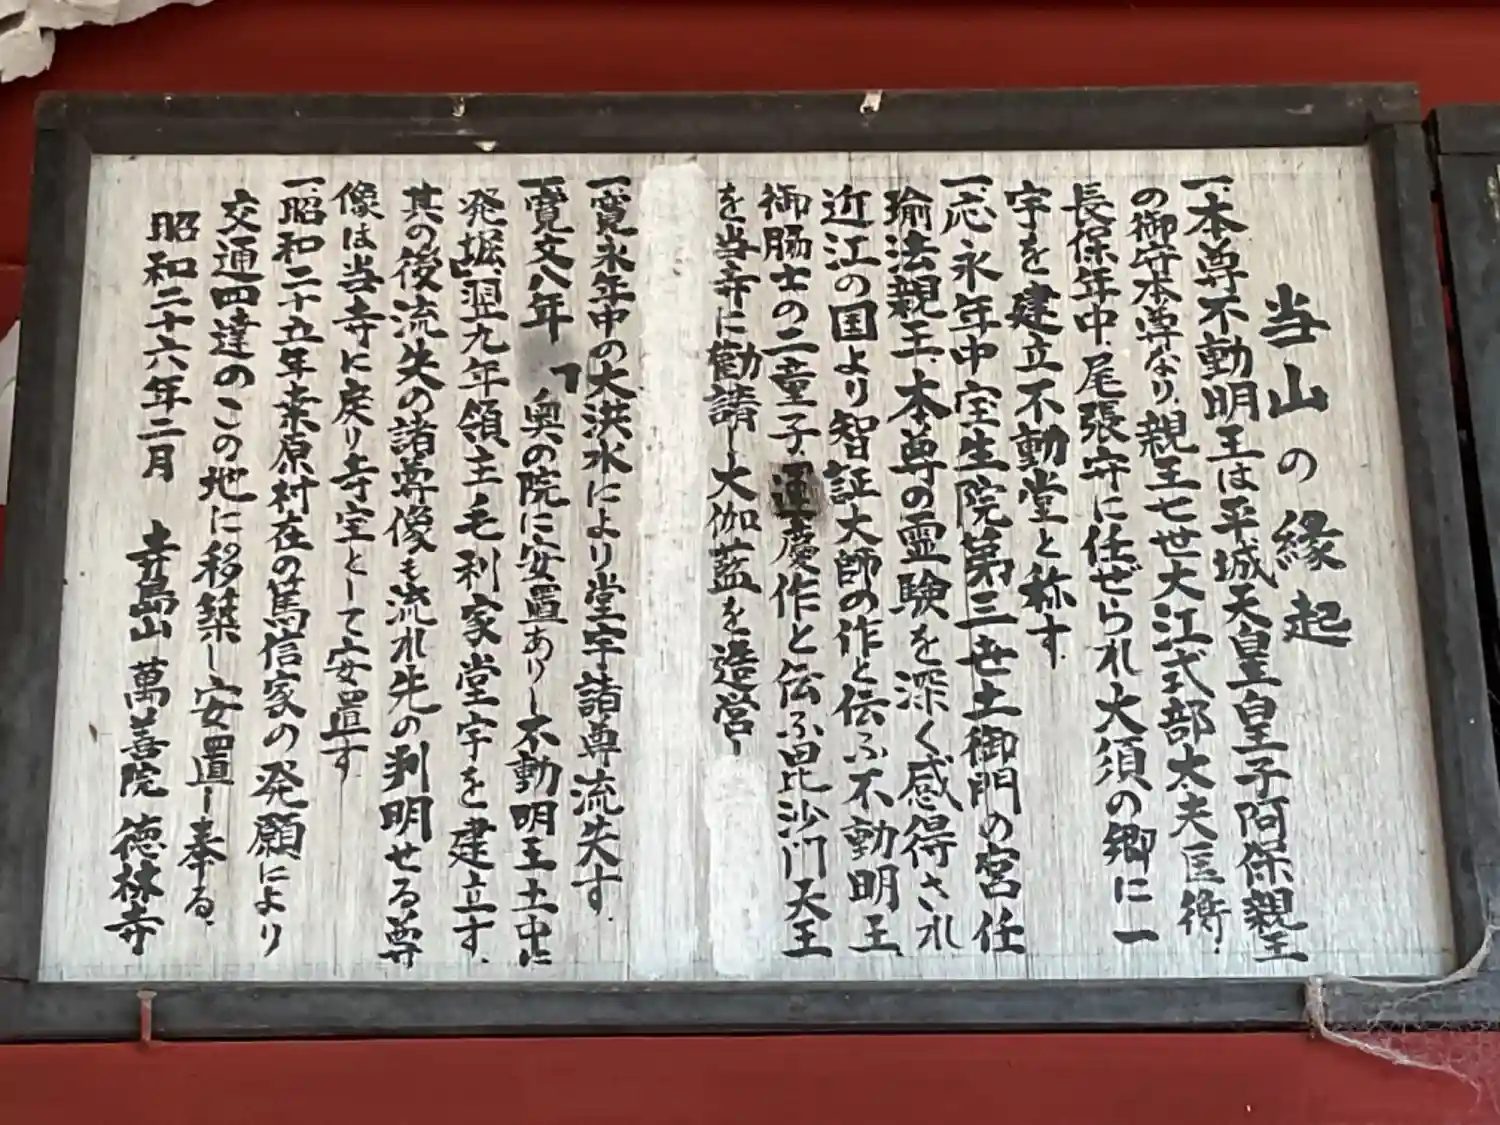 当山の縁起
一、本尊不動明王は平城天皇皇子阿保親王
の御守本尊なり、親王七世大江式部太夫匡衡、
長保年中、尾張守に任ぜられ大須の郷に一
宇を建立不動堂と称す、
一、応永年中宝生院第三世土御門の宮任
瑜法親王、本尊の霊験を深く感得され
近江の国より智証大師の作と伝ふ不動明王
御脇士の二童子、運慶作と伝ふ毘沙門天王
を当寺に勧請し大伽藍を造営し
一、寛永年中の大洪水により堂宇諸尊流失す、
一、寛文八年「奥の院に安置ありし不動明王土中に
発堀、翌九年領主毛利家堂宇を建立す、
其の後流失の諸尊像も流れ先の判明せる尊
像は当寺に戻り寺宝として安置す
一、昭和二十五年桑原村在の篤信家の発願により
交通四達のこの地に移築し安置し奉る、
昭和二十六年二月 寺島山 萬善院 徳林寺